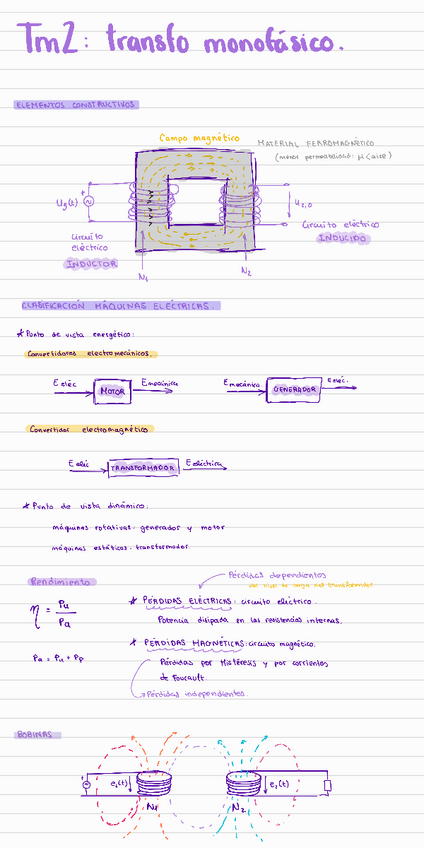 Tm2: transfo monofásico.
ELEMENTOS CONSTRUCTIVOS
Campo magnético
MATERIAL FERROMAGNÉTICO
(menor permeabilidad: μ < aire)
Ug(t)
U2,0
Circuito eléctrico
INDUCTOR
Circuito eléctrico
INDUCIDO
N1
N2
CLASIFICACIÓN MÁQUINAS ELÉCTRICAS.
* Punto de vista energético:
Convertidores electromecánicos.
E eléc
MOTOR
E mecánica
E mecánica
GENERADOR
E eléc.
Convertidor electromagnético
E eléc
TRANSFORMADOR
E eléctrica
* Punto de vista dinámico:
máquinas rotativas: generador y motor
máquinas estáticas: transformador
Rendimiento
Pérdidas dependientes
del nivel de carga del transformador
η = Pu / Pa
* PÉRDIDAS ELÉCTRICAS: circuito eléctrico.
Potencia disipada en las resistencias internas.
* PÉRDIDAS MAGNÉTICAS: circuito magnético.
Pa = Pu + Pp
Pérdidas por Histéresis y por corrientes
de Foucault.
Pérdidas independientes.
BOBINAS
e1(t)
N1
N2
e2(t)